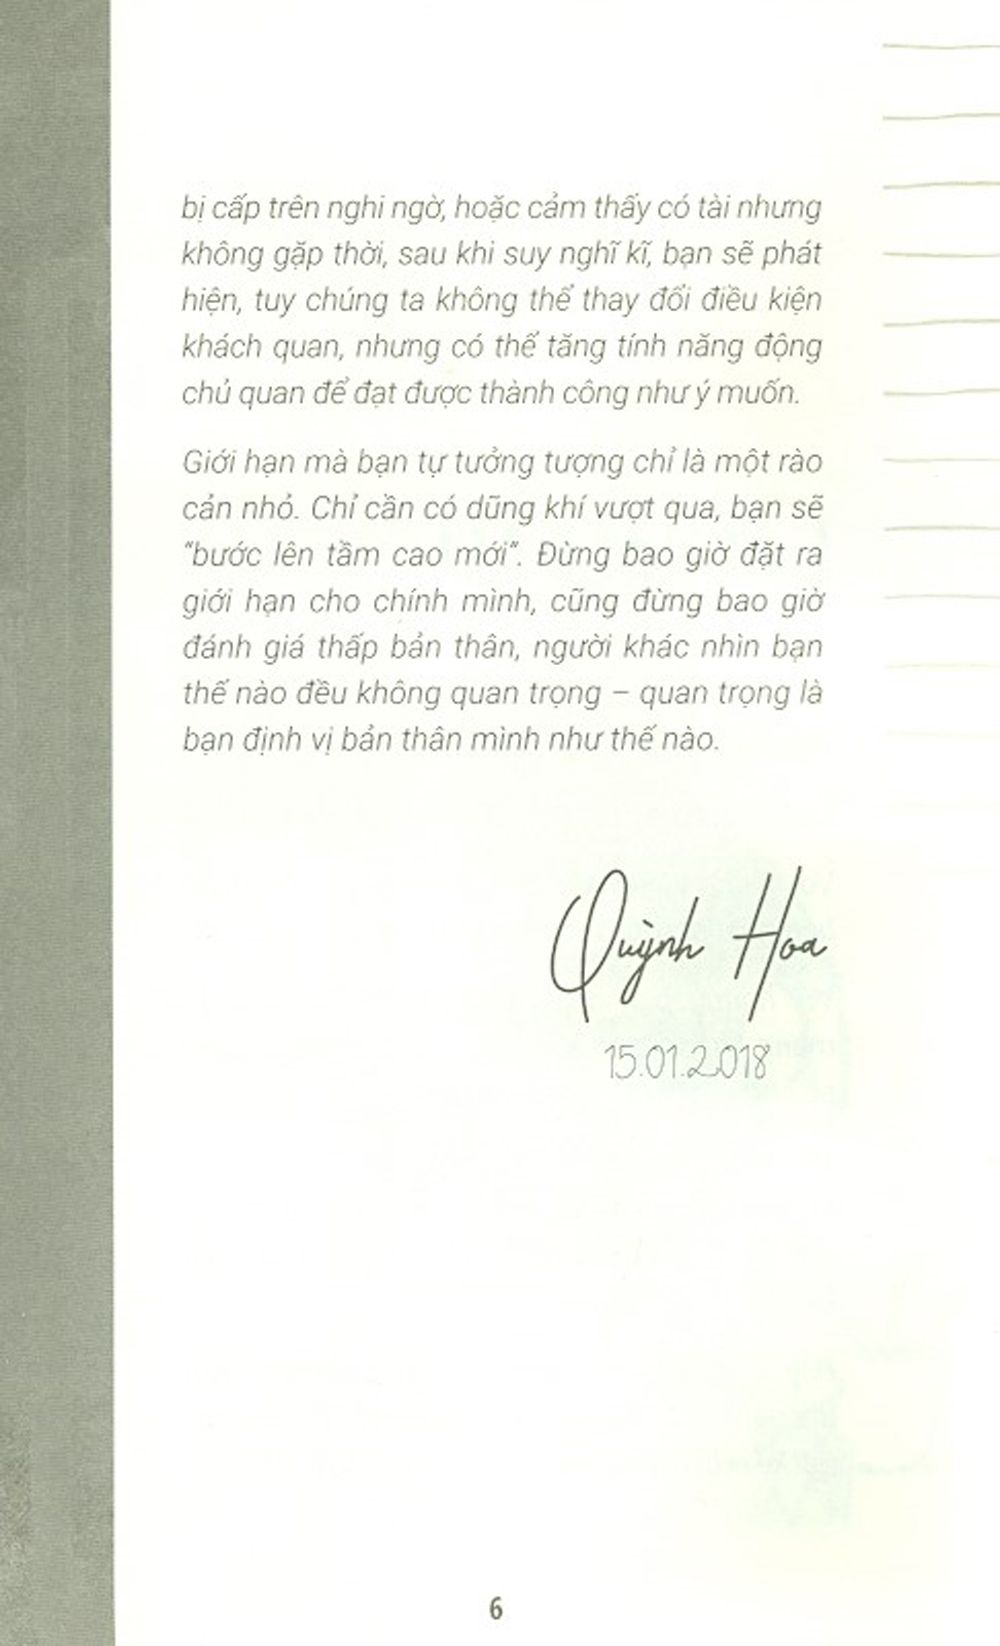 bị cấp trên nghi ngờ, hoặc cảm thấy có tài nhưng
không gặp thời, sau khi suy nghĩ kĩ, bạn sẽ phát
hiện, tuy chúng ta không thể thay đổi điều kiện
khách quan, nhưng có thể tăng tính năng động
chủ quan để đạt được thành công như ý muốn.
Giới hạn mà bạn tự tưởng tượng chỉ là một rào
cản nhỏ. Chỉ cần có dũng khí vượt qua, bạn sẽ
“bước lên tầm cao mới“. Đừng bao giờ đặt ra
giới hạn cho chính mình, cũng đừng bao giờ
đánh giá thấp bản thân, người khác nhìn bạn
thế nào đều không quan trọng – quan trọng là
bạn định vị bản thân mình như thế nào.
Quỳnh Hoa
15.01.2018
6